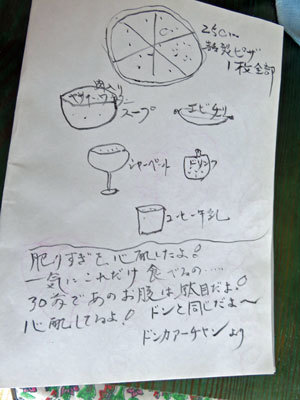 25cm
特製ピザ
1枚全部
スープ
エビチリ
シャーベット
ドリンク
コーヒー牛乳
肥りすぎを心配したよ!
一気にこれだけ食べるの……
30才であのお腹は駄目だよ!
ドンと同じだよ〜
心配してるよ!
ドンカアーチャンより